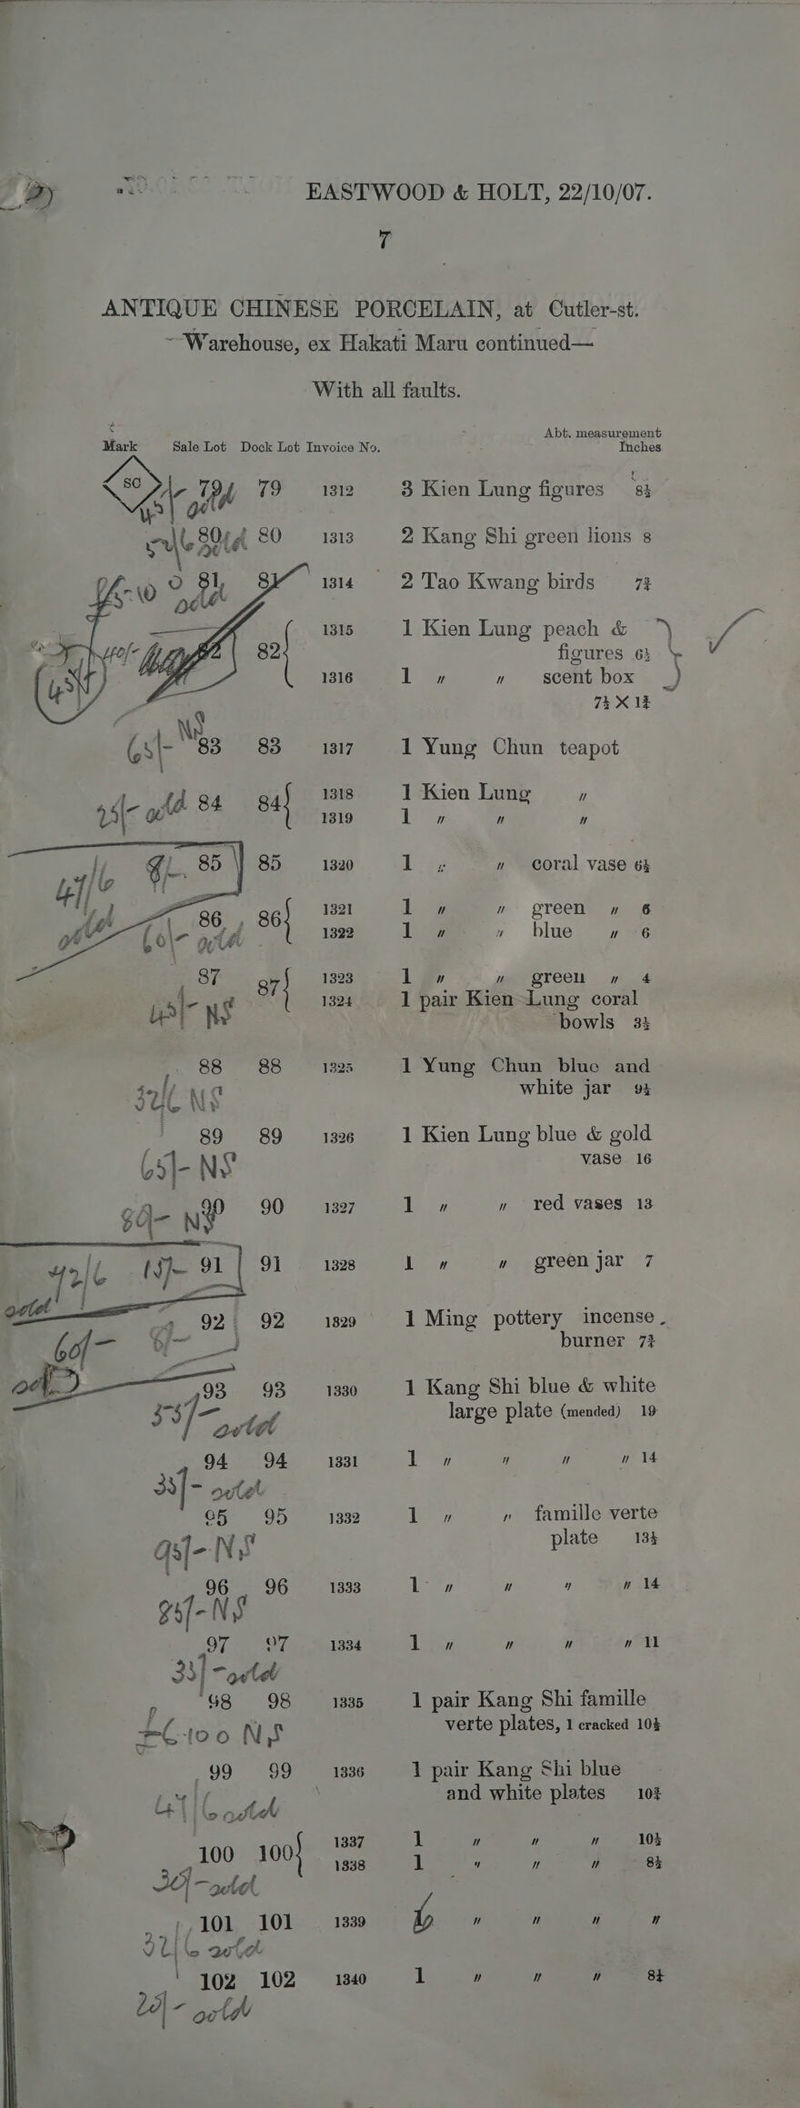 EASTWOOD & HOLT, 22/10/07.
7
ANTIQUE CHINESE PORCELAIN, at Cutler-st.
Warehouse, ex Hakati Maru continued—
With all faults.
Abt. measurement
Mark Sale Lot Dock Lot Invoice No. Inches
SO 79 79 1312 3 Kien Lung figures 8½
80 80 1313 2 Kang Shi green lions 8
81 81 1314 2 Tao Kwang birds 7¾
82 82 { 1315 1 Kien Lung peach &
figures 6½
1316 1 " " scent box
7½ X 1¾
65/- NS
83 83 1317 1 Yung Chun teapot
25/- 84 84 { 1318 1 Kien Lung "
1319 1 " " "
47/6 85 85 1320 1 " " coral vase 6½
86 86 { 1321 1 " " green " 6
60/- 1322 1 " " blue " 6
87 87 { 1323 1 " " green " 4
45/- NS 1324 1 pair Kien Lung coral
bowls 3½
88 88 1325 1 Yung Chun blue and
32/6 NS white jar 9½
89 89 1326 1 Kien Lung blue & gold
65/- NS vase 16
80/- NS 90 90 1327 1 " " red vases 13
42/6 91 91 1328 1 " " green jar 7
92 92 1329 1 Ming pottery incense
60/- burner 7¾
93 93 1330 1 Kang Shi blue & white
55/- large plate (mended) 19
94 94 1331 1 " " " " 14
35/-
95 95 1332 1 " " famille verte
95/- NS plate 13½
96 96 1333 1 " " " " 14
85/- NS
97 97 1334 1 " " " " 11
35/-
98 98 1335 1 pair Kang Shi famille
100 NS verte plates, 1 cracked 10¾
99 99 1336 1 pair Kang Shi blue
and white plates 10¾
100 100 { 1337 1 " " " 10½
1338 1 " " " 8½
30/-
101 101 1339 " " " "
32/6
102 102 1340 1 " " " 8½
20/-